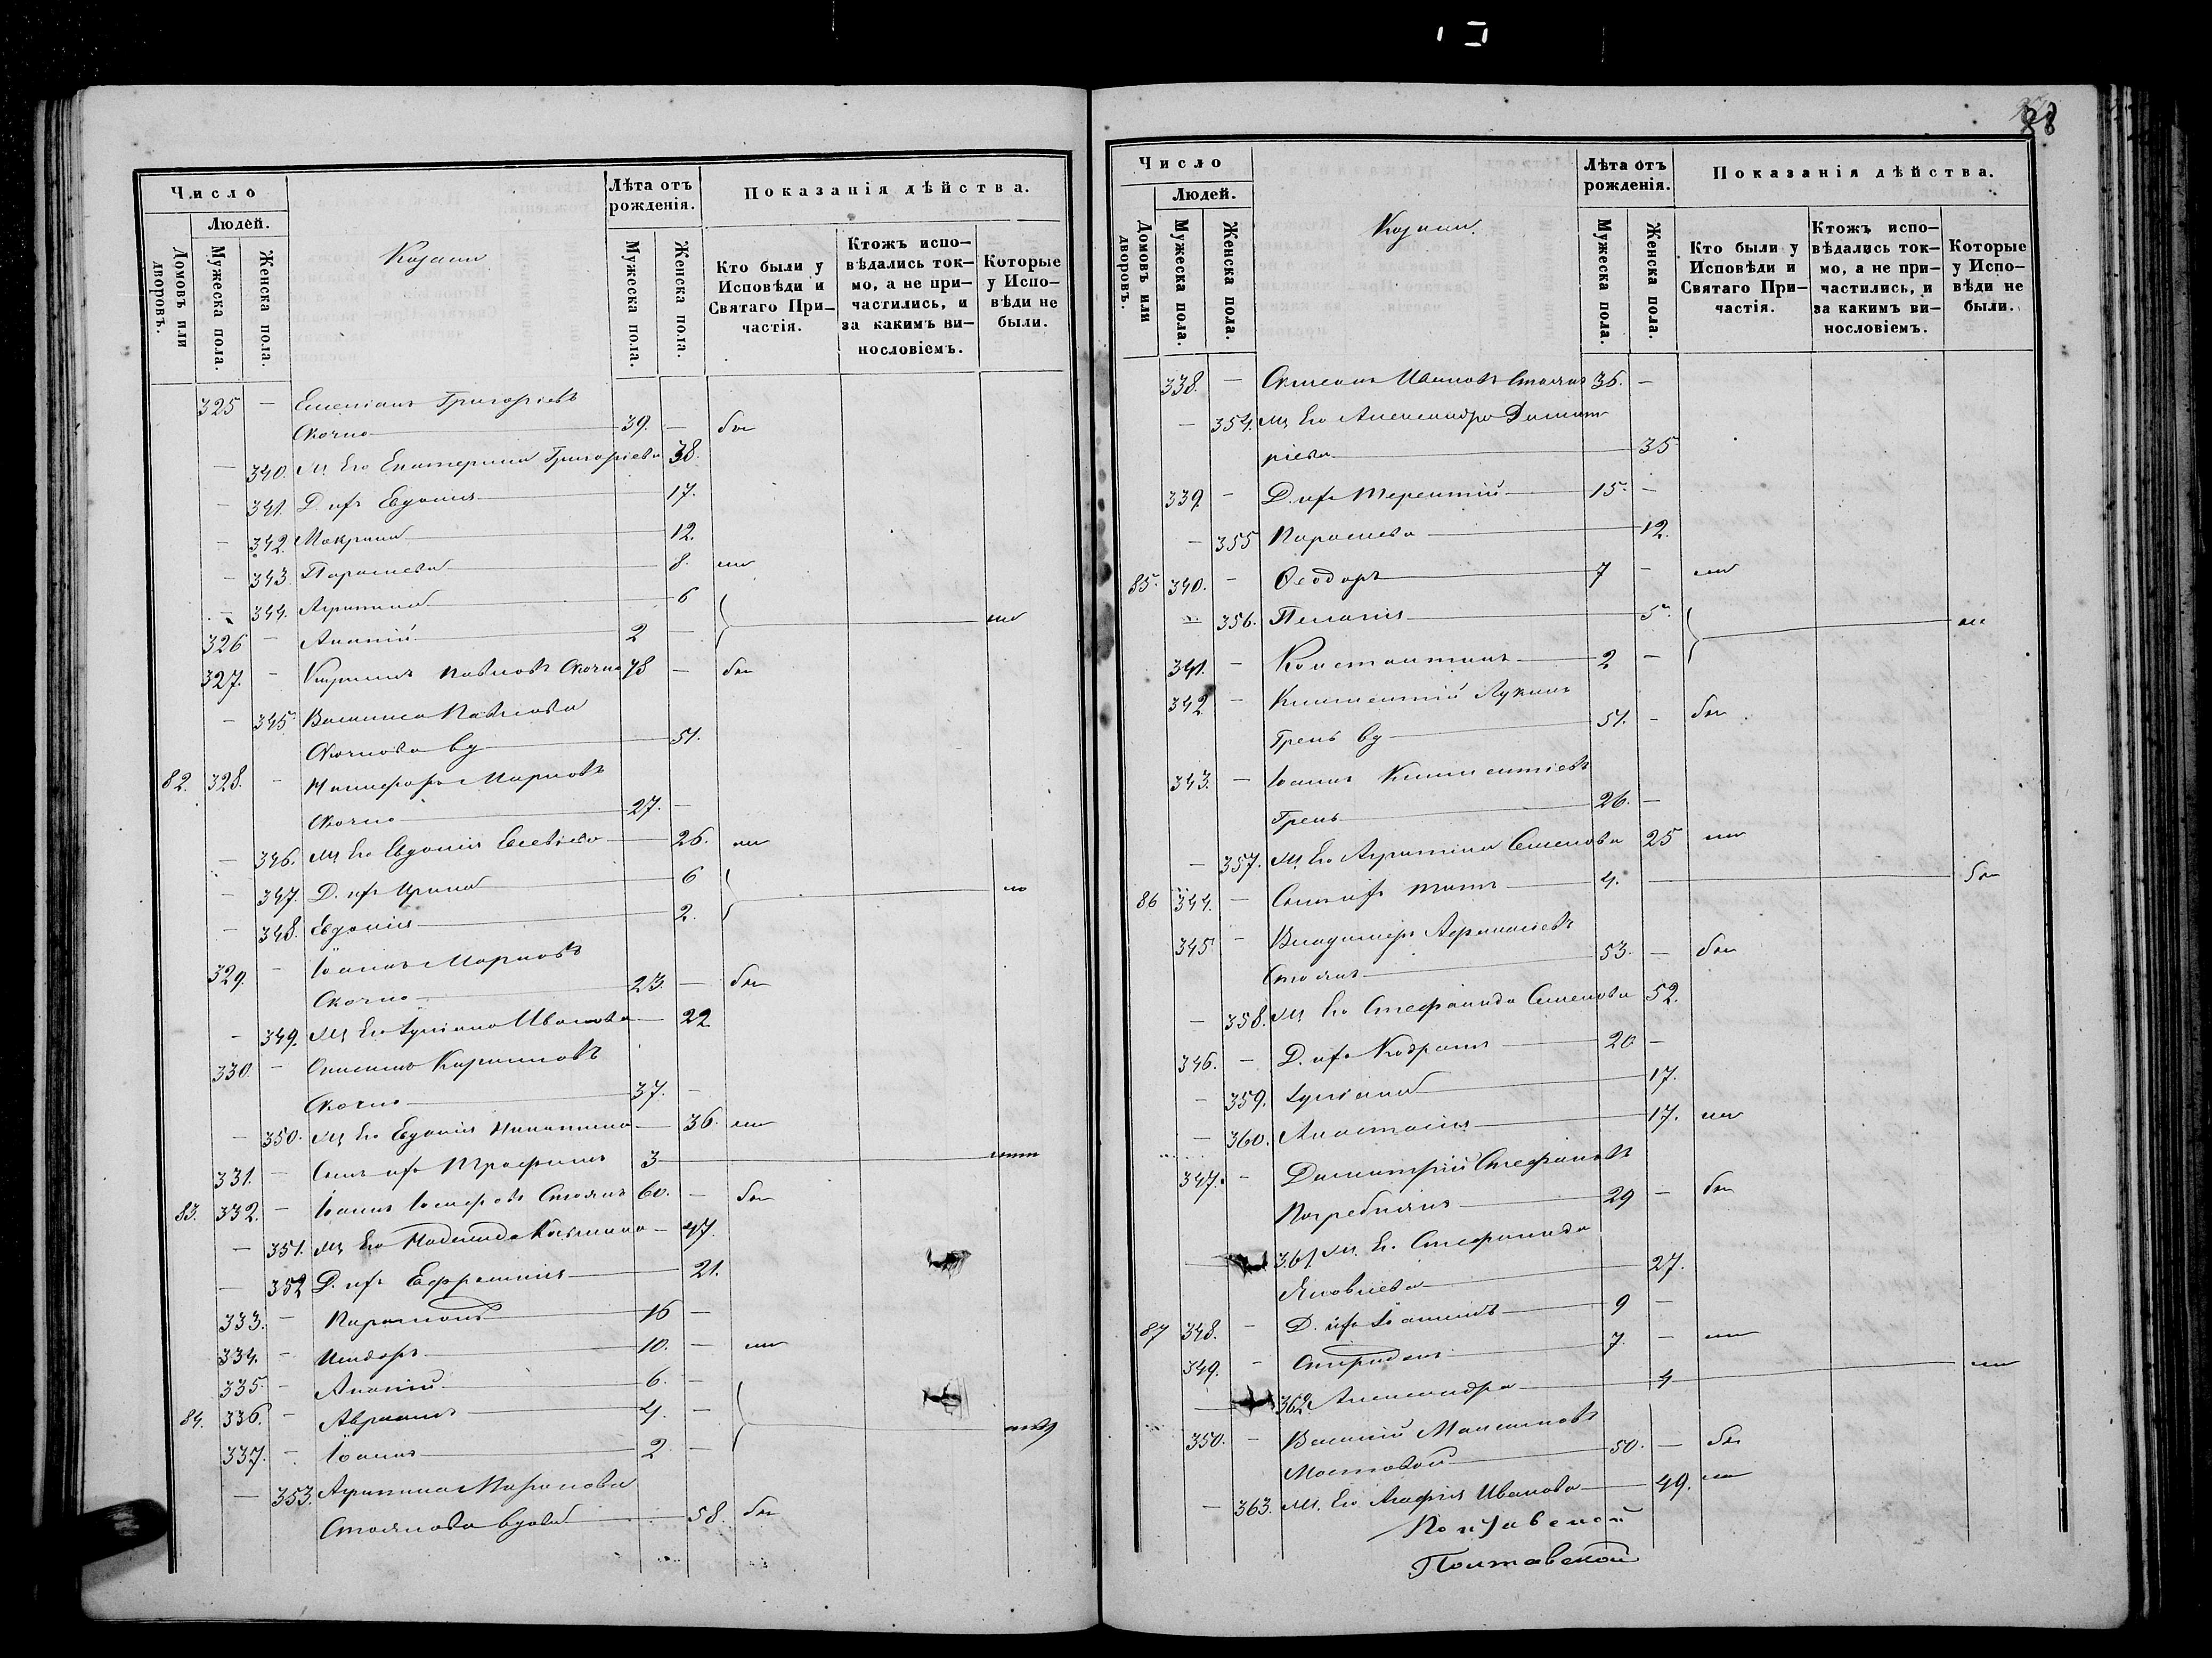 88
Число
Людей.
Домовъ или дворовъ.
Мужеска пола.
Женска пола.
Козаки
Лѣта отъ рожденія.
Мужеска пола.
Женска пола.
Показанія дѣйства.
Кто были у Исповѣди и Святаго Причастія.
Ктожъ исповѣдались токмо, а не причастились, и за какимъ винословіемъ.
Которые у Исповѣди не были.
325 — Емеліанъ Григорьевъ
Скочко 39. — бы
— 340. Ж. Его Екатерина Григорьева 38.
— 341. Д. ихъ Евдокія 17.
— 342. Макрина 12.
— 343. Параскева 8. ли
— 344. Агрипина 6
326 — Ананій 2 — ли
327. — Кириллъ Павловъ Скочко 78 — бы
— 345 Василиса Павлова
Скочкова вд 51.
82. 328. — Никифоръ Марковъ
Скочко 27. —
— 346. Ж. Его Евдокія Евсѣева 26. ли
— 347. Д. ихъ Ирина 6
— 348. Евдокія 2.
329. — Іоаннъ Марковъ
Скочко 23. — бы
— 349. Ж. Его Іуліана Иванова 22
330. — Симеонъ Кирилловъ
Скочко 37. —
— 350. Ж. Его Евдокія Никитина 36. ли
331. — Сынъ ихъ Трофимъ 3
83. 332. — Іоаннъ Іосифовъ Стоянъ 60. — бы
— 351. Ж. Его Надежда Косьмина 47.
— 352 Д. ихъ Ефросинія 21.
333. — Парамонъ 16 —
334. — Исидоръ 10. — ли
335. — Ананій 6. —
84. 336. — Авраамъ 4. —
337. — Іоаннъ 2 —
— 353. Агрипина Миронова
Стоянова вдова 58. бы
Число
Людей.
Домовъ или дворовъ.
Мужеска пола.
Женска пола.
Козаки.
Лѣта отъ рожденія.
Мужеска пола.
Женска пола.
Показанія дѣйства.
Кто были у Исповѣди и Святаго Причастія.
Ктожъ исповѣдались токмо, а не причастились, и за какимъ винословіемъ.
Которые у Исповѣди не были.
338. — Симеонъ Ивановъ Стоянъ 36. —
— 354. Ж. Его Александра Димит
ріева 35
339. — Д. ихъ Терентій 15. —
— 355 Параскева 12.
85. 340. — Ѳеодоръ 7 — ли
— 356. Пелагія 5
341. — Константинъ 2 —
342 — Климентій Лукинъ
Грень вд 51. — бы
343. — Іоаннъ Климентіевъ
Грень 26. —
— 357. Ж. Его Агрипина Семенова 25 ли
86 344. — Сынъ ихъ Титъ 4. бы
345 — Владимиръ Афанасіевъ
Стоянъ 53. — бы
— 358. Ж. Его Стефанида Семенова 52.
346. — Д. ихъ Кодратъ 20 —
— 359. Іуліана 17.
— 360. Анастасія 17. ли
347. — Димитрій Стефановъ
Погребнякъ 29 — бы
— 361 Ж. Е. Стефанида
Яковлева 27.
87 348. — Д. ихъ Іоанникъ 9 —
349. — Спиридонъ 7. — ли
— 362. Александра 4 ли
350. — Василій Максимовъ
Мостовой 50. — бы
— 363. Ж. Его Агафія Иванова 49. ли
Полтавской